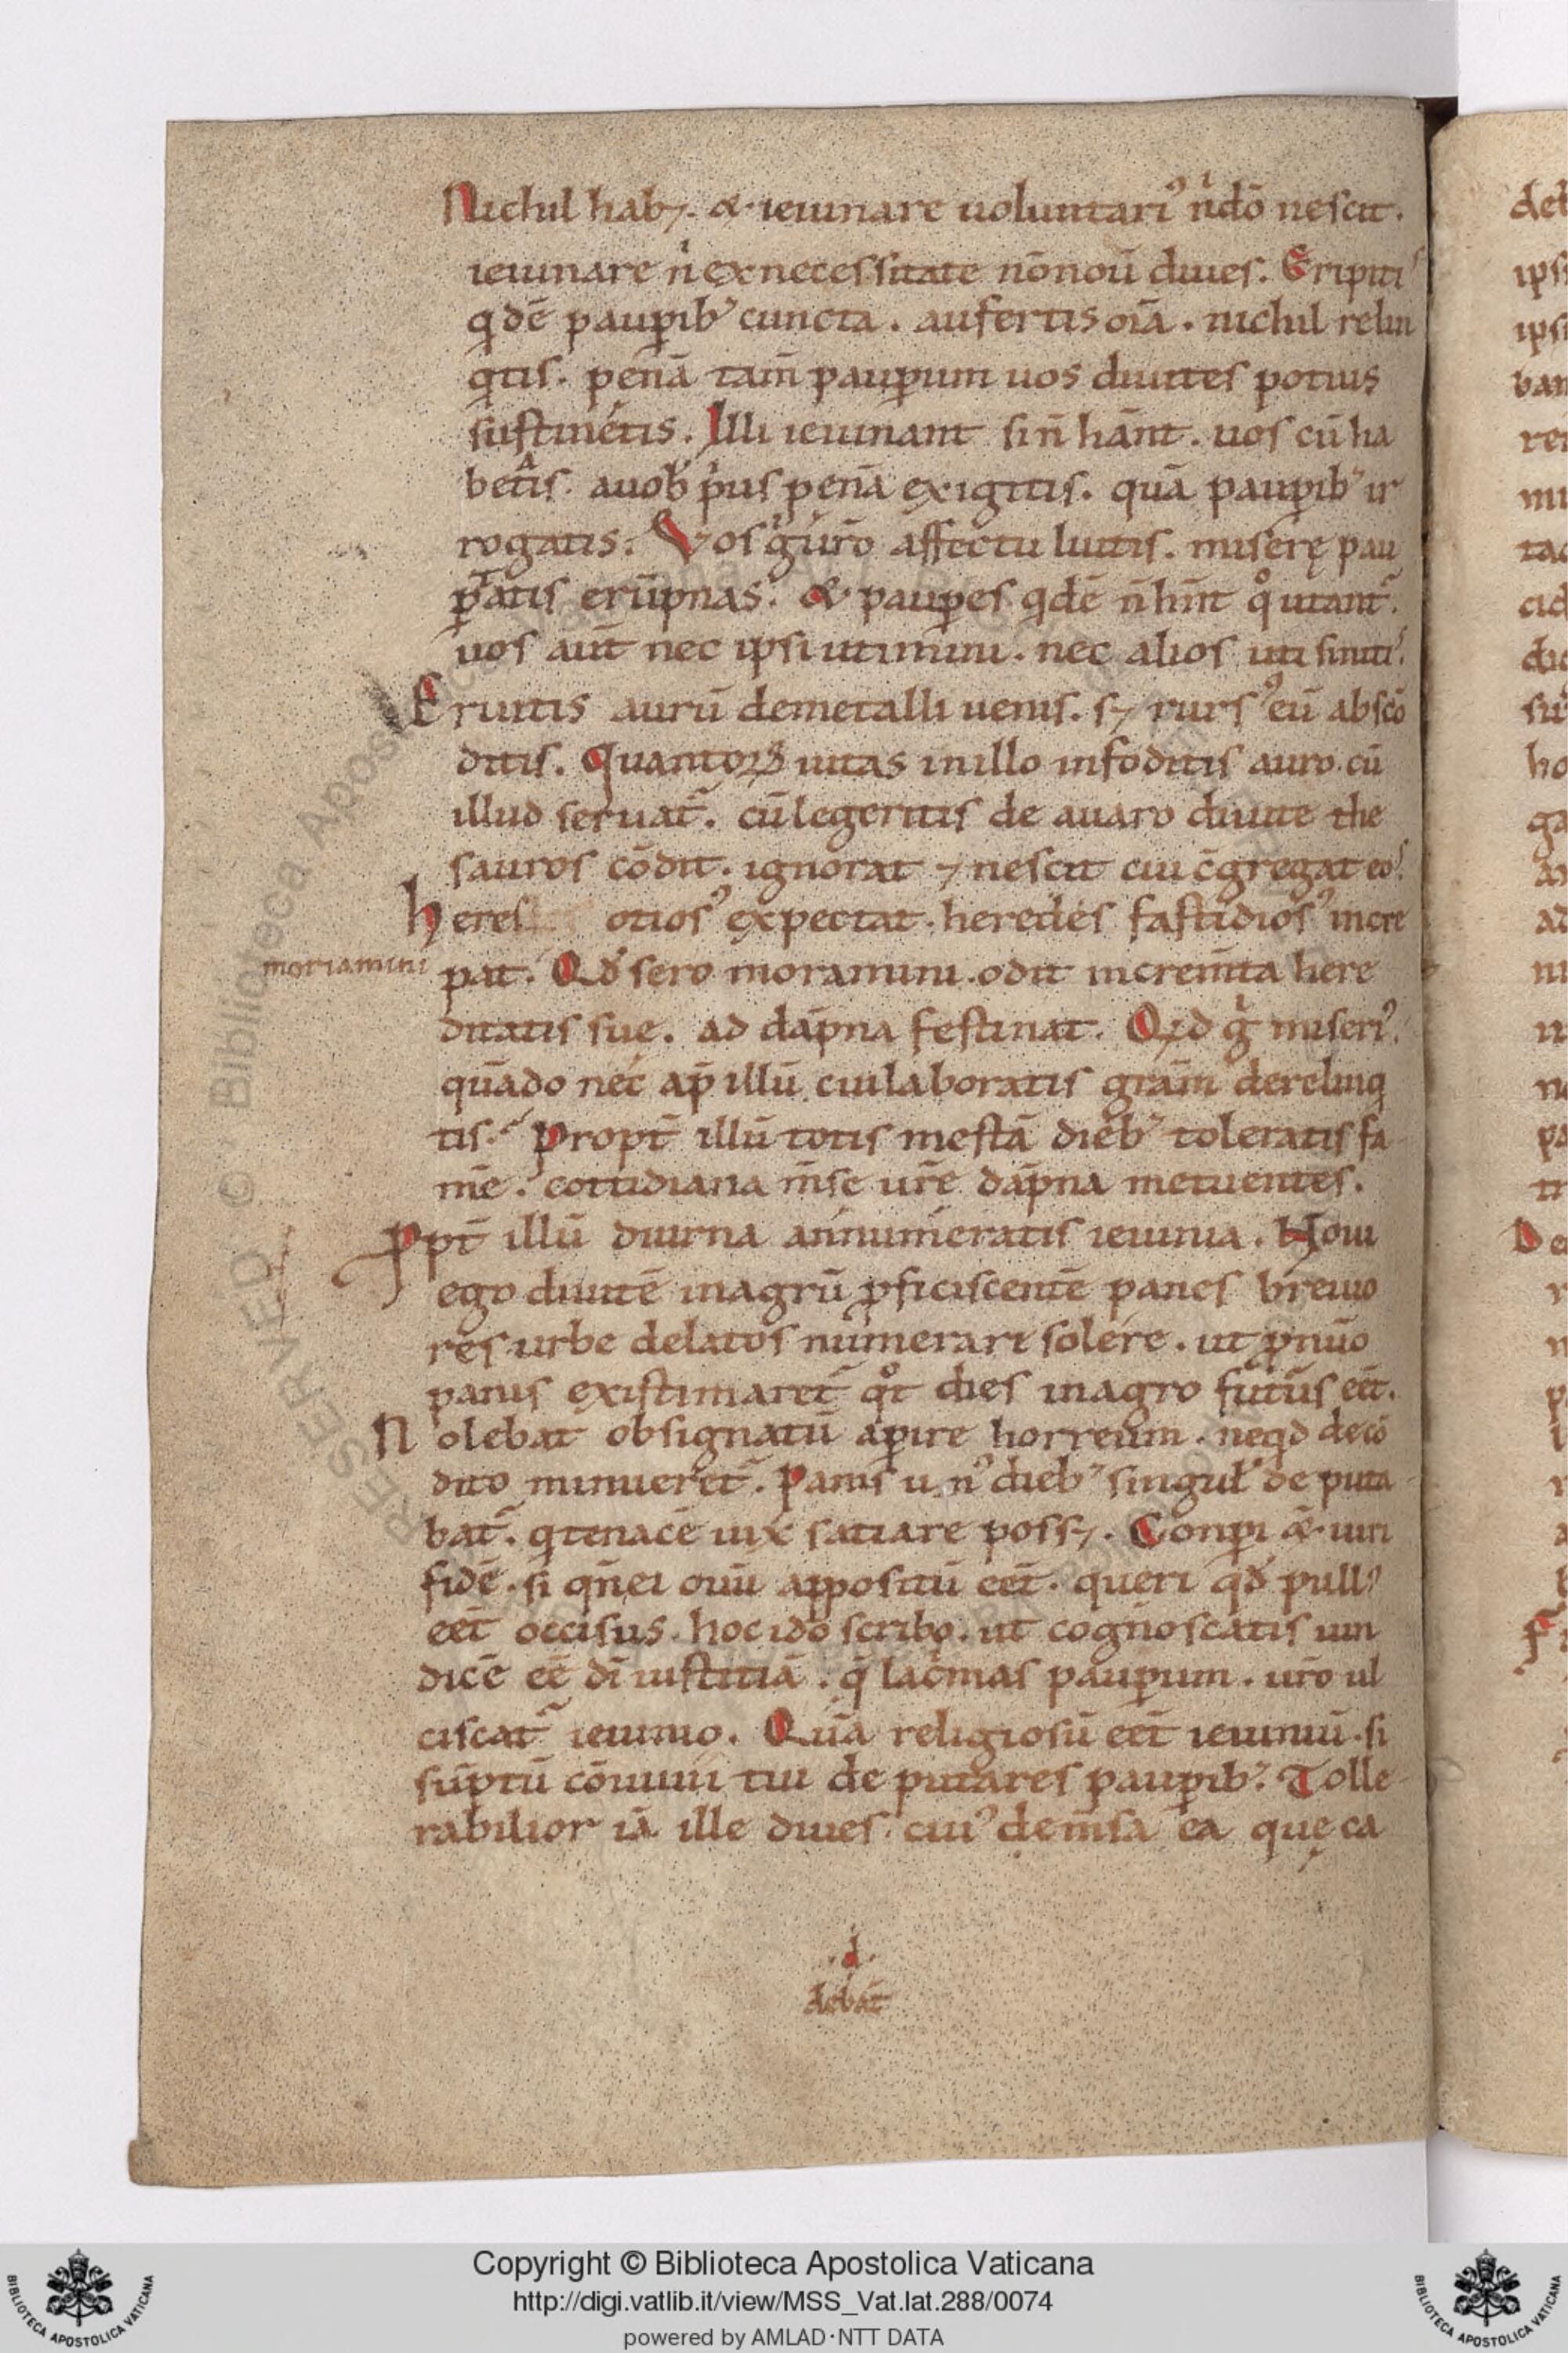 Nichil habꝫ. & ieiunare uoluntariꝰ n̄dō nescit.
ieiunare ń ex necessitate nōnoū diues. Eripitis
qdē paupibꝰ cuncta. aufertis oīa. nichil relin
qtis. penā tam̄ paupum uos diuites potius
sustinetis. Illi ieiunant sin̄ hānt. uos cū ha
betis. auob p̓us penā exigitis. quā paupibꝰ ir
rogatis. Vos gͥ ur̄o affectu luitis. miserę pau
ptatis erūpnas. & paupes qdē n̄ hn̄t qͦ utant᷑.
uos aut̄ nec ipsi utimini. nec alios uti sinitis.
Eruitis aurū demetalli uenis. sꝫ rursꝰ eū abscō
ditis. Quantoꝝ uitas inillo infoditis auro. cū
illud seruat᷑. cū legeritis de auaro diuite the
sauros cōdit. ignorat ⁊ nescit cui c̄gregat eos.
heres otiosꝰ expectat. heredes fastidiosꝰ incre
moriamini
pat. Qd̓ sero moramini. odit increm̄ta here
ditatis sue. ad dāpna festinat. Qid gͥ miseriꝰ.
quādo nec ap̄ illū cui laboratis grām derelinq
tis. Propt̄ illū totis mestā diebꝰ toleratis fa
mē. cottidiana m̄se ur̄e dāpna metuentes.
Ppt̄ illū diurna annumeratis ieiunia. Noui
ego diuitē inagrū pficiscentē panes breuio
res urbe delatos numerare solere. ut pnūo
panis existimaret᷑ qͦt dies inagro futūs eēt.
Nolebat obsignatū apire horreum. neqd decō
dito minueret᷑. Panis u. nꝰ diebꝰ singul̓ deputa
bat᷑. q tenacē uix satiare possꝫ. Conpi & uiri
fidē. si qn̄ ei ouū appositū eēt. queri qd̓ pullꝰ
eēt occisus. hoc idō scribo. ut cognoscatis uin
dicē eē dī iustitiā. q̄ lac̓mas paupum. ur̄o ul
ciscat᷑ ieiunio. Quā religiosū eēt ieiuniū. si
sūptū cōuiuii tui deputares paupibꝰ. Tolle
rabilior iā ille diues. cuiꝰ dem̄sa ea quę ca
.d.
debat
Copyright © Biblioteca Apostolica Vaticana
http://digi.vatlib.it/view/MSS_Vat.lat.288/0074
powered by AMLAD·NTT DATA
BIBLIOTECA APOSTOLICA VATICANA
BIBLIOTECA APOSTOLICA VATICANA